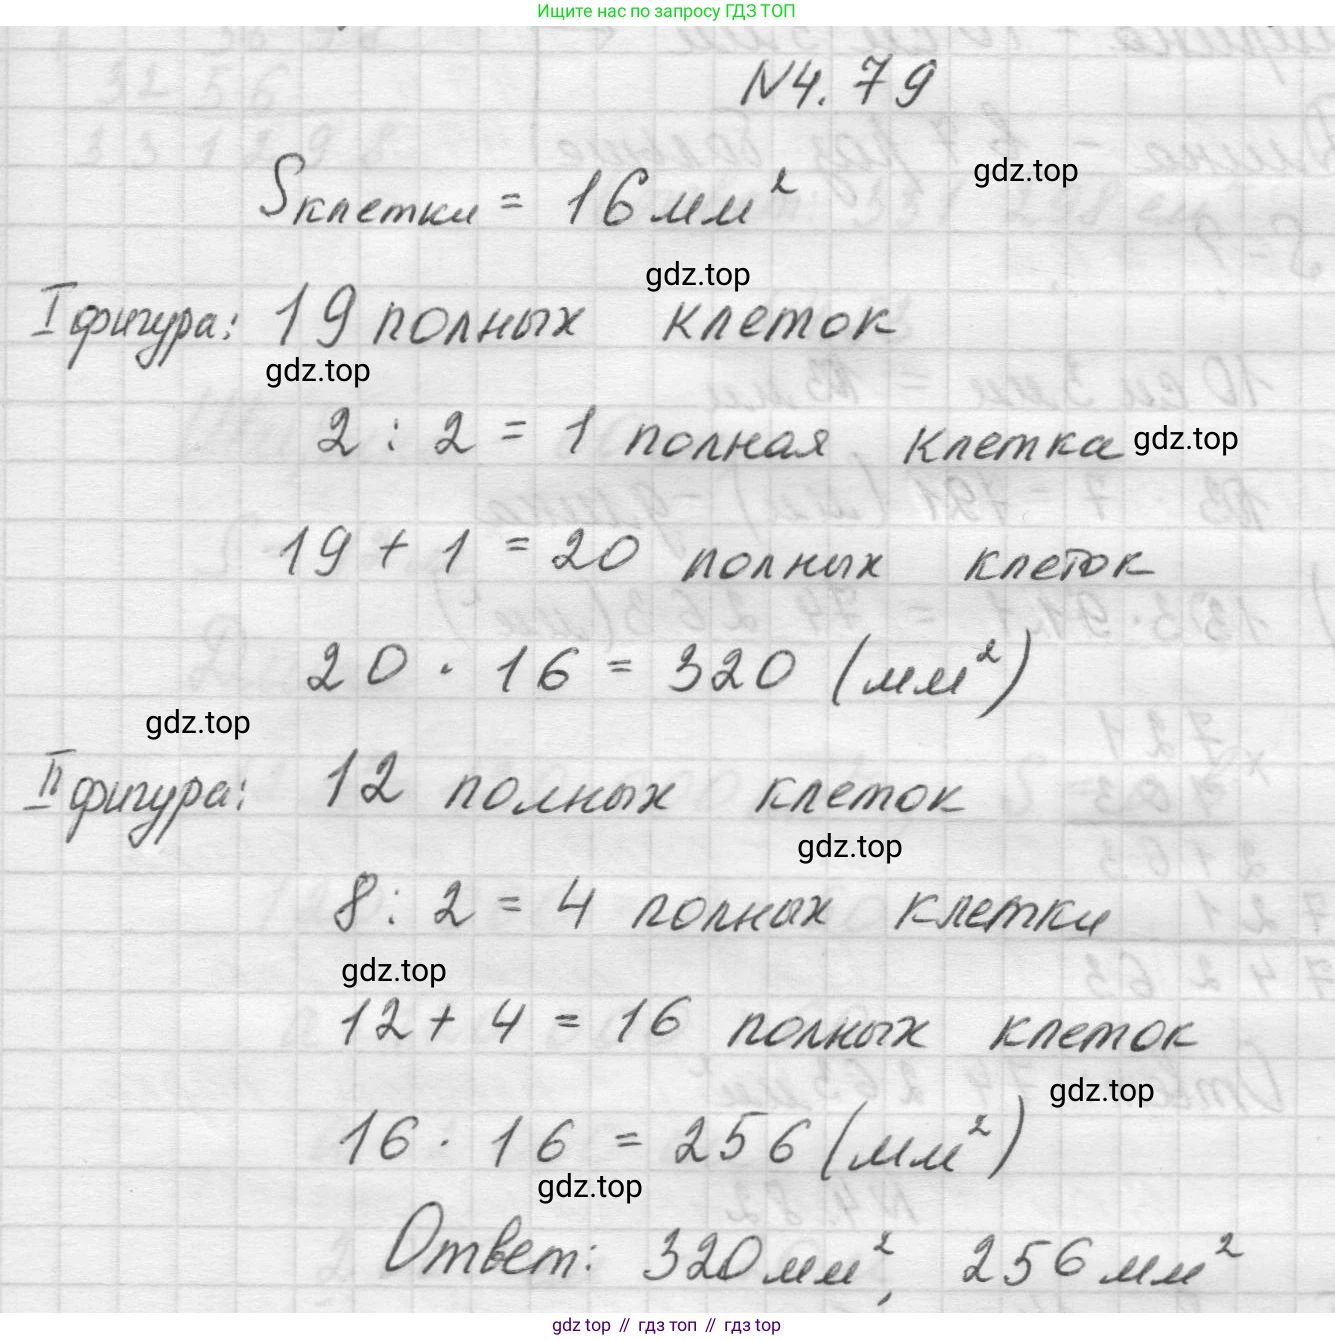 Ищите нас по запросу ГДЗ ТОП
№4.79
gdz.top
Sклетки = 16 мм²
gdz.top
I фигура: 19 полных клеток
gdz.top
2 : 2 = 1 полная клетка
gdz.top
19 + 1 = 20 полных клеток
20 · 16 = 320 (мм²)
gdz.top
II фигура: 12 полных клеток
gdz.top
8 : 2 = 4 полных клетки
gdz.top
12 + 4 = 16 полных клеток
gdz.top
16 · 16 = 256 (мм²)
gdz.top
Ответ: 320 мм², 256 мм²
gdz.top // гдз топ // гдз.top